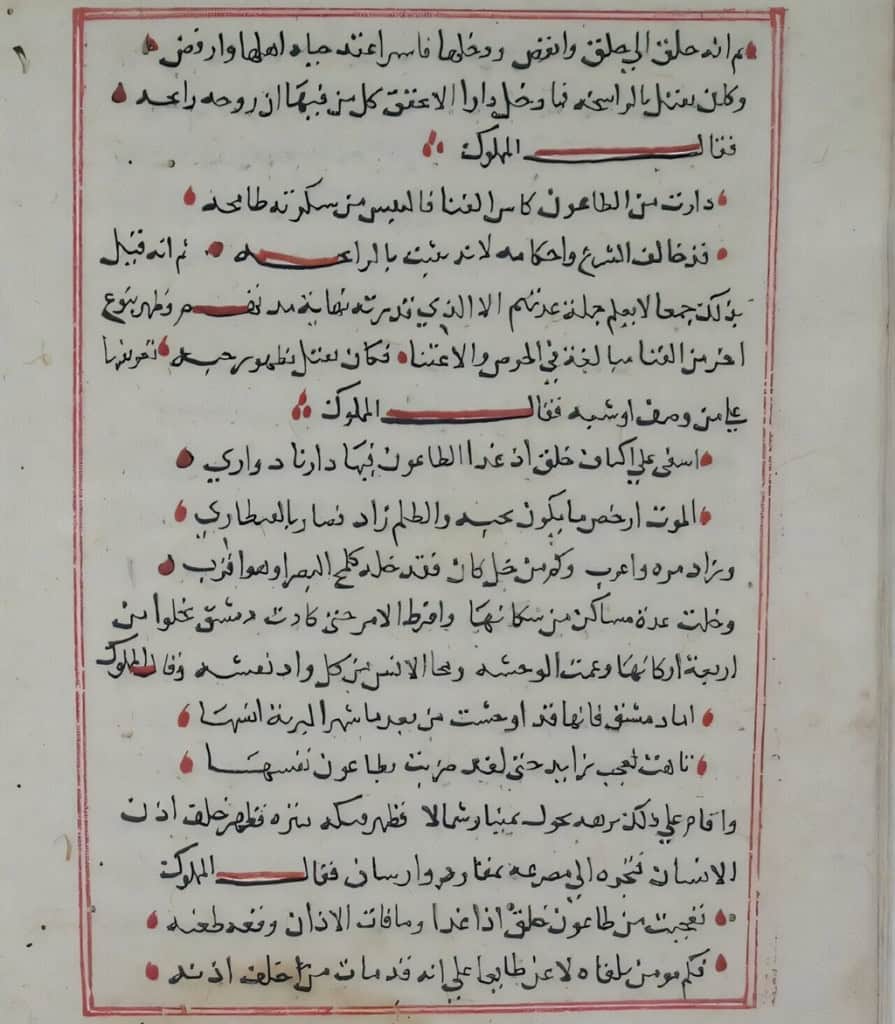 ثم انه حلق الي جلق وانقض ودخلها فاسرا عند جباه اهلها وارفض
وكان يقتل بالرايحه فما دخل دارا الا تحقق كل من فيها ان روحه رايحه
فقال المملوك
دارت من الطاعون كاس الفنا فالنفس من سكرته طافحه
قد خالف الشرع واحكامه لانه يثبت بالرايحه ثم انه قتل
بذلك جمعا لا يعلم جملة عدتهم الا الذي قدر نهاية مدتهم وظهر بنوع
اخر من الفنا مبالغة في الحرص والاعتنا فكان يقتل بظهور حبه
علي من وصف او شبه فقال المملوك
اسفي علي اكناف جلق اذ غدا الطاعون فيها دارنا دواري
الموت ارخص ما يكون بحبه والظلم زاد فصار بالقنطاري
وزاد مره واعرب وكم من خل كان فقد خله كلمح البصر او هو اقرب
وخلت عدة مساكن من سكانها وافرط الامر حتي كادت دمشق تخلوا من
اربعة اركانها وعمت الوحشه ومحا الانس من كل واد نعشه وقال المملوك
اما دمشق فانها قد اوحشت من بعد ما شهد البرية انسها
تاهت بعجب زايد حتي لقد ضربت بطاعون نفسها
واقام علي ذلك برهه يجول يمينا وشمالا فظهر خلف اذن
الانسان فتجره الي مصرعه فقال المملوك
تعجبت من طاعون جلق اذا غدا وما فاتت الاذان وقعه طعنه
فكم مومن تلقاه لاعن طايعا علي انه قد مات من خلف اذنه